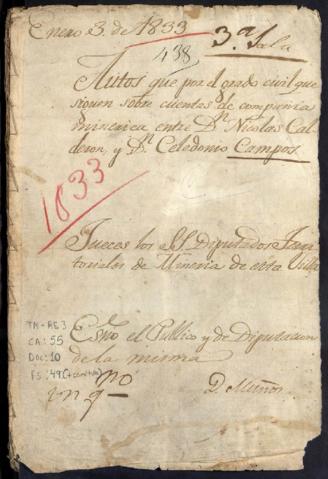 Enero 3. de 1833
3.ª Sala
438
Autos que por el grado civil que
siguen sobre cuentas de compania
mineria entre D.n Nicolas Cal
deron, y D.n Celedonio Campos
1833
Jueces los SS. Diputados Terri
toriales de Mineria de esta Villa
TM-RE3
CA: 55
DOC: 10
FS: 49
Esno el Publico y de Diputacion
de la misma
D. Muños